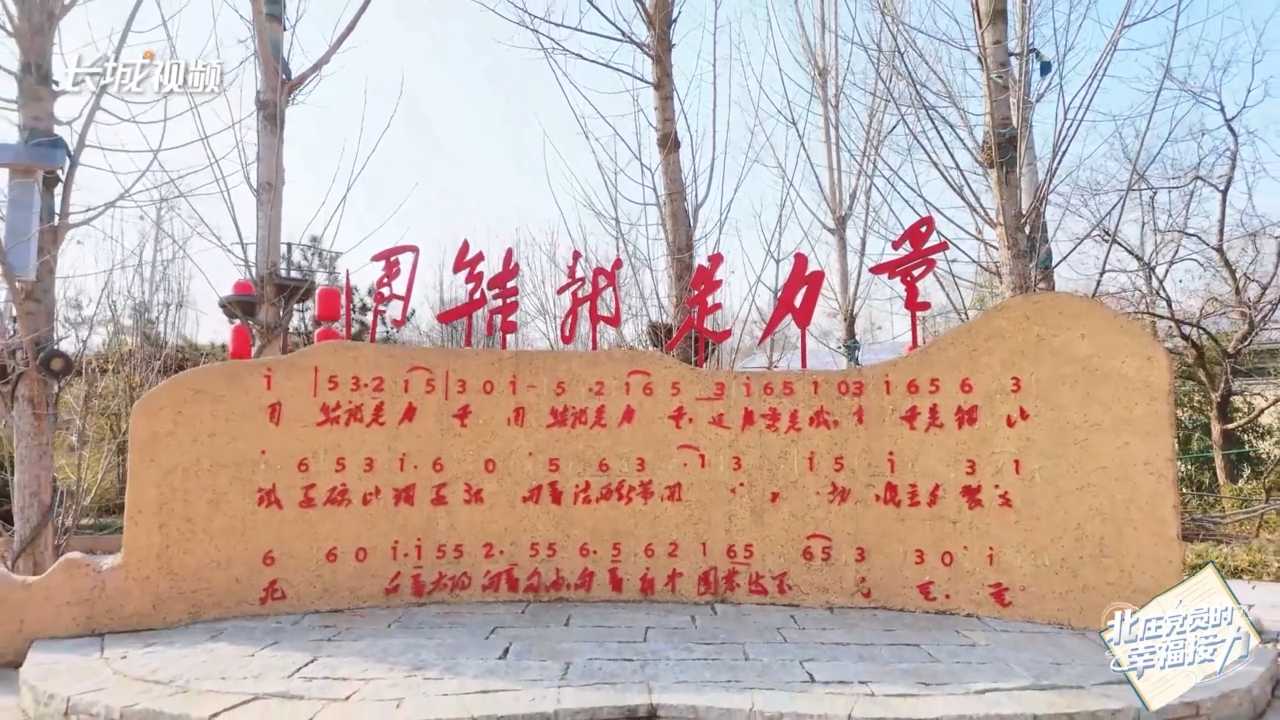 长城视频
团结就是力量
i |5 3·2 i 5|3 0 i - 5 ·2 i 6 5 3 i 6 5 1 0 3 i 6 5 6 3
团 结就是力 量 团 结就是力 量 这力量是 铁 量是钢 比
6 5 3 i· 6 0 5 6 3 ·1 3 i 5 i 3 1
铁还硬比钢还强 向着法西斯蒂开
6 6 0 i·i 5 5 2· 5 5 6· 5 6 2 1 6 5 6 5 3 3 0 i
死 向着太阳向着自由向着新中国
北庄党员的
幸福接力